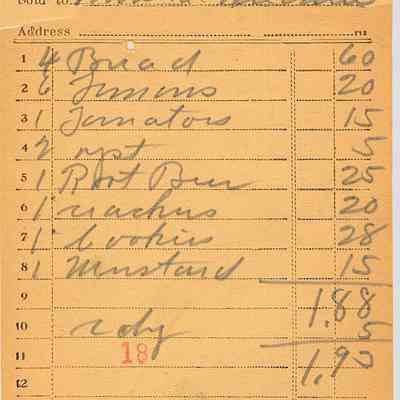 Sold to
Address
1 4 Bread 60
2 6 Lemons 20
3 1 Tomatoes 15
4 2 5
5 1 Root Beer 25
6 1 crackers 20
7 1 Cookies 28
8 1 Mustard 15
9 1.88
10 5
11 18 1.93
12